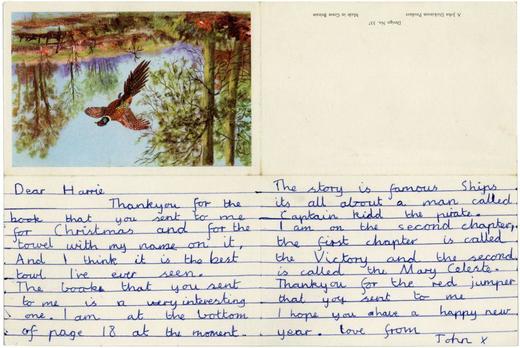 A John Dickinson Product
Made in Great Britain
Design No. 137
Dear Harrie
Thankyou for the
book that you sent to me
for Christmas and for the
towel with my name on it,
And I think it is the best
towl I've ever seen.
The book that you sent
to me is a very interesting
one. I am at the bottom
of page 18 at the moment.
The story is famous Ships
its all about a man called
Captain kidd the pirate.
I am on the second chapter,
the first chapter is called
the Victory and the second
is called the Mary Celeste.
Thankyou for the red jumper
that you sent to me
I hope you have a happy new
year. love from
John x